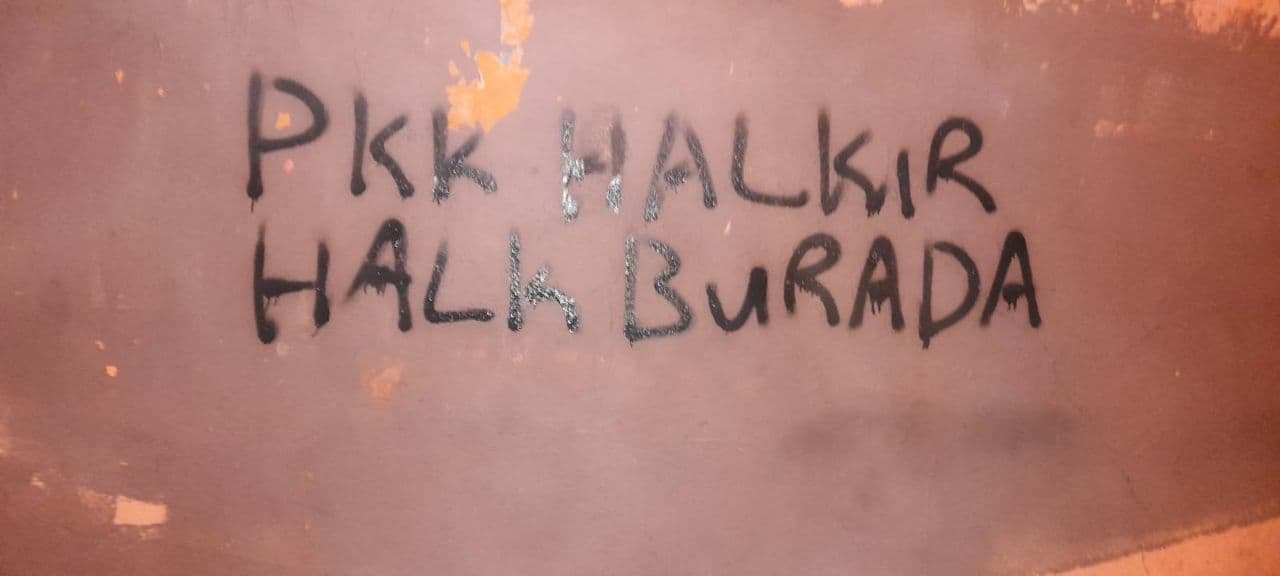 PKK HALKIR
HALK BURADA